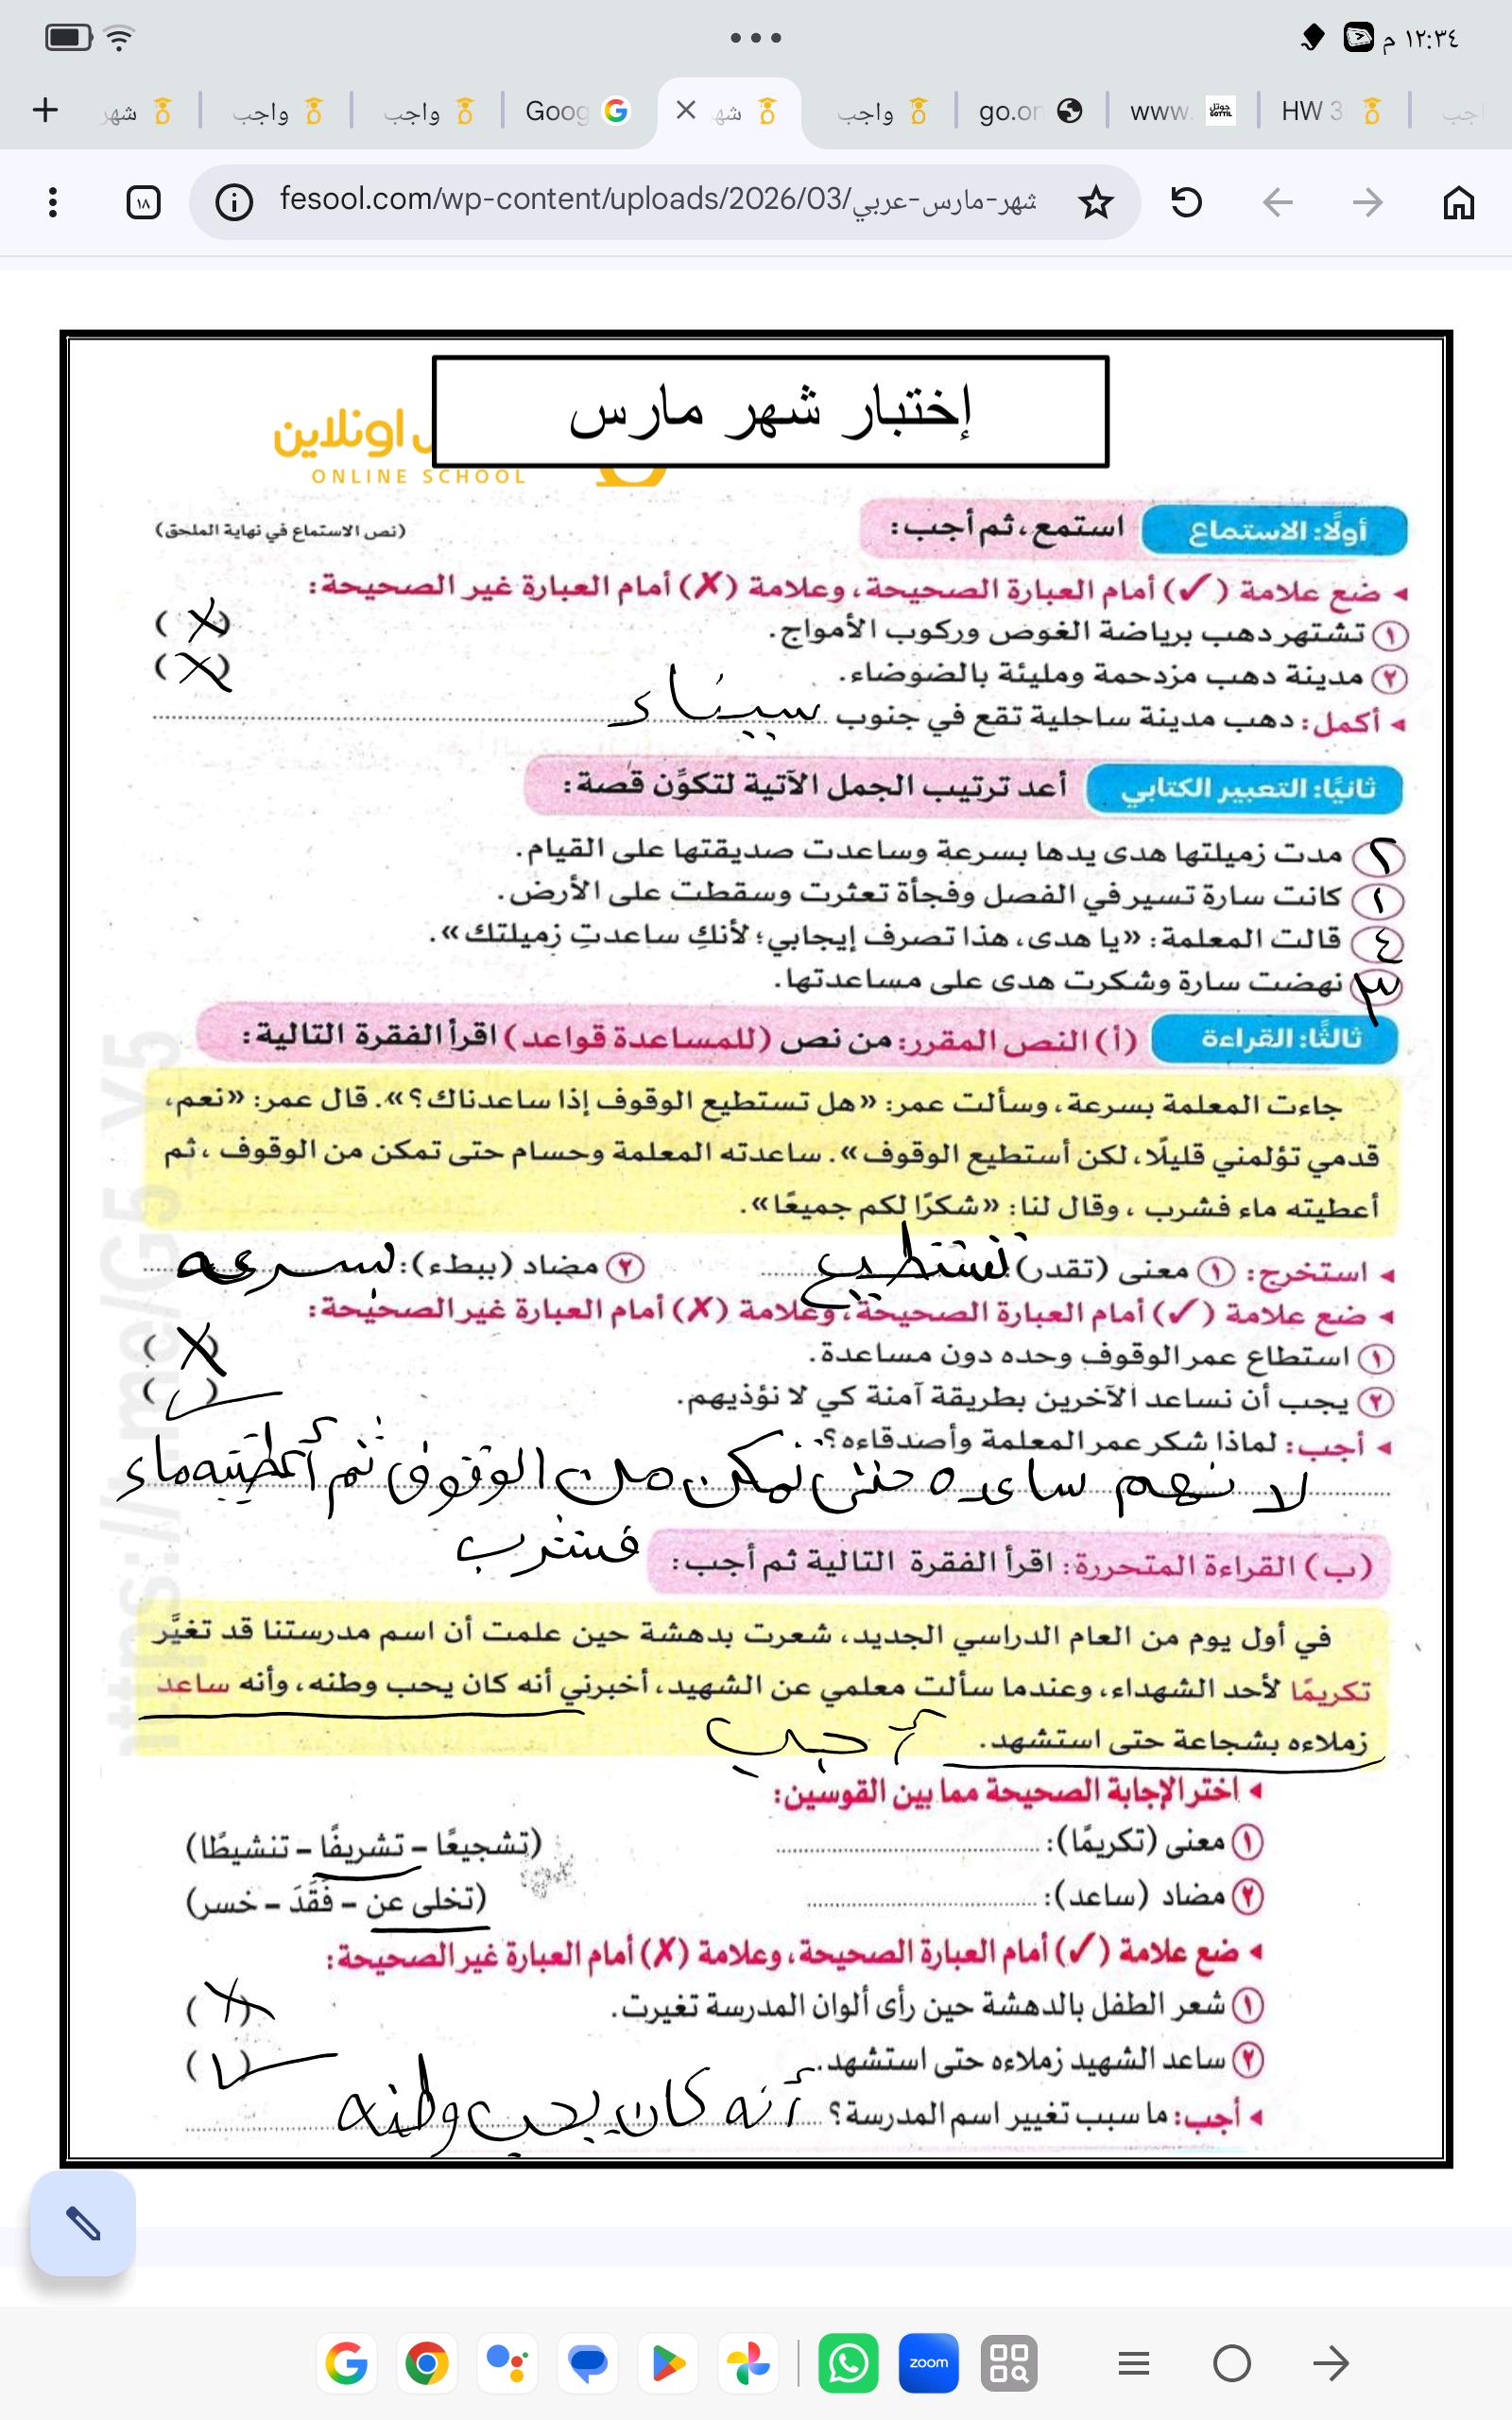 ١٢:٣٤ م
شهر
واجب
واجب
Goog
شه
واجب
go.or
www.
HW 3
١٨
fesool.com/wp-content/uploads/2026/03/شهر-مارس-عربي
إختبار شهر مارس
اونلاين
ONLINE SCHOOL
أولًا: الاستماع استمع، ثم أجب:
(نص الاستماع في نهاية الملحق)
◂ ضع علامة (✓) أمام العبارة الصحيحة، وعلامة (✗) أمام العبارة غير الصحيحة:
١ تشتهر دهب برياضة الغوص وركوب الأمواج. (X)
٢ مدينة دهب مزدحمة ومليئة بالضوضاء. (X)
◂ أكمل: دهب مدينة ساحلية تقع في جنوب سيناء
ثانيًا: التعبير الكتابي أعد ترتيب الجمل الآتية لتكوِّن قصة:
٢ مدت زميلتها هدى يدها بسرعة وساعدت صديقتها على القيام.
١ كانت سارة تسير في الفصل وفجأة تعثرت وسقطت على الأرض.
٤ قالت المعلمة: «يا هدى، هذا تصرف إيجابي؛ لأنكِ ساعدتِ زميلتك».
٣ نهضت سارة وشكرت هدى على مساعدتها.
ثالثًا: القراءة (أ) النص المقرر: من نص (للمساعدة قواعد) اقرأ الفقرة التالية:
جاءت المعلمة بسرعة، وسألت عمر: «هل تستطيع الوقوف إذا ساعدناك؟». قال عمر: «نعم،
قدمي تؤلمني قليلًا، لكن أستطيع الوقوف». ساعدته المعلمة وحسام حتى تمكن من الوقوف، ثم
أعطيته ماء فشرب، وقال لنا: «شكرًا لكم جميعًا».
◂ استخرج: ١ معنى (تقدر): تستطيع ٢ مضاد (ببطء): بسرعه
◂ ضع علامة (✓) أمام العبارة الصحيحة، وعلامة (✗) أمام العبارة غير الصحيحة:
١ استطاع عمر الوقوف وحده دون مساعدة. (X)
٢ يجب أن نساعد الآخرين بطريقة آمنة كي لا نؤذيهم. (✓)
◂ أجب: لماذا شكر عمر المعلمة وأصدقاءه؟
لا نهم ساعده حتى تمكن من الوقوف ثم أعطيته ماء
فشرب
(ب) القراءة المتحررة: اقرأ الفقرة التالية ثم أجب:
في أول يوم من العام الدراسي الجديد، شعرت بدهشة حين علمت أن اسم مدرستنا قد تغيَّر
تكريمًا لأحد الشهداء، وعندما سألت معلمي عن الشهيد، أخبرني أنه كان يحب وطنه، وأنه ساعد
زملاءه بشجاعة حتى استشهد. أجب
◂ اختر الإجابة الصحيحة مما بين القوسين:
١ معنى (تكريمًا): (تشجيعًا – تشريفًا – تنشيطًا)
٢ مضاد (ساعد): (تخلى عن – فَقَدَ – خسر)
◂ ضع علامة (✓) أمام العبارة الصحيحة، وعلامة (✗) أمام العبارة غير الصحيحة:
١ شعر الطفل بالدهشة حين رأى ألوان المدرسة تغيرت. (X)
٢ ساعد الشهيد زملاءه حتى استشهد. (✓)
◂ أجب: ما سبب تغيير اسم المدرسة؟ أنه كان يحب وطنه
https://t.me/G5_V5
zoom